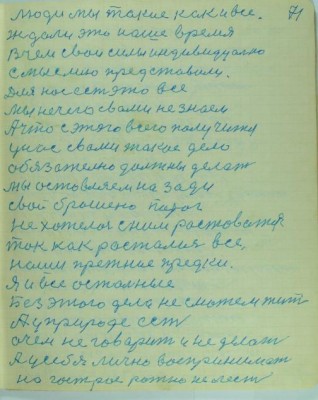 Люди мы такие как и все. 71
ждали это наше время
В чем свои силы индивидуално
смыслию представили.
Для нас ест это все
Мы нечего с вами не знаем
А что с этого всего получим
у нас с вами такое дело
обязателно должны делат
мы оставляем на зади
свой брошено
не хотелос с ним растоватся
так как расталися все
наши прежние предки.
Я и все осталные
Без этого дела не сможем жит
А у природе ест
о чем не говорит и не делат
А у себя лично воспринимат
на гострое рожно не лест